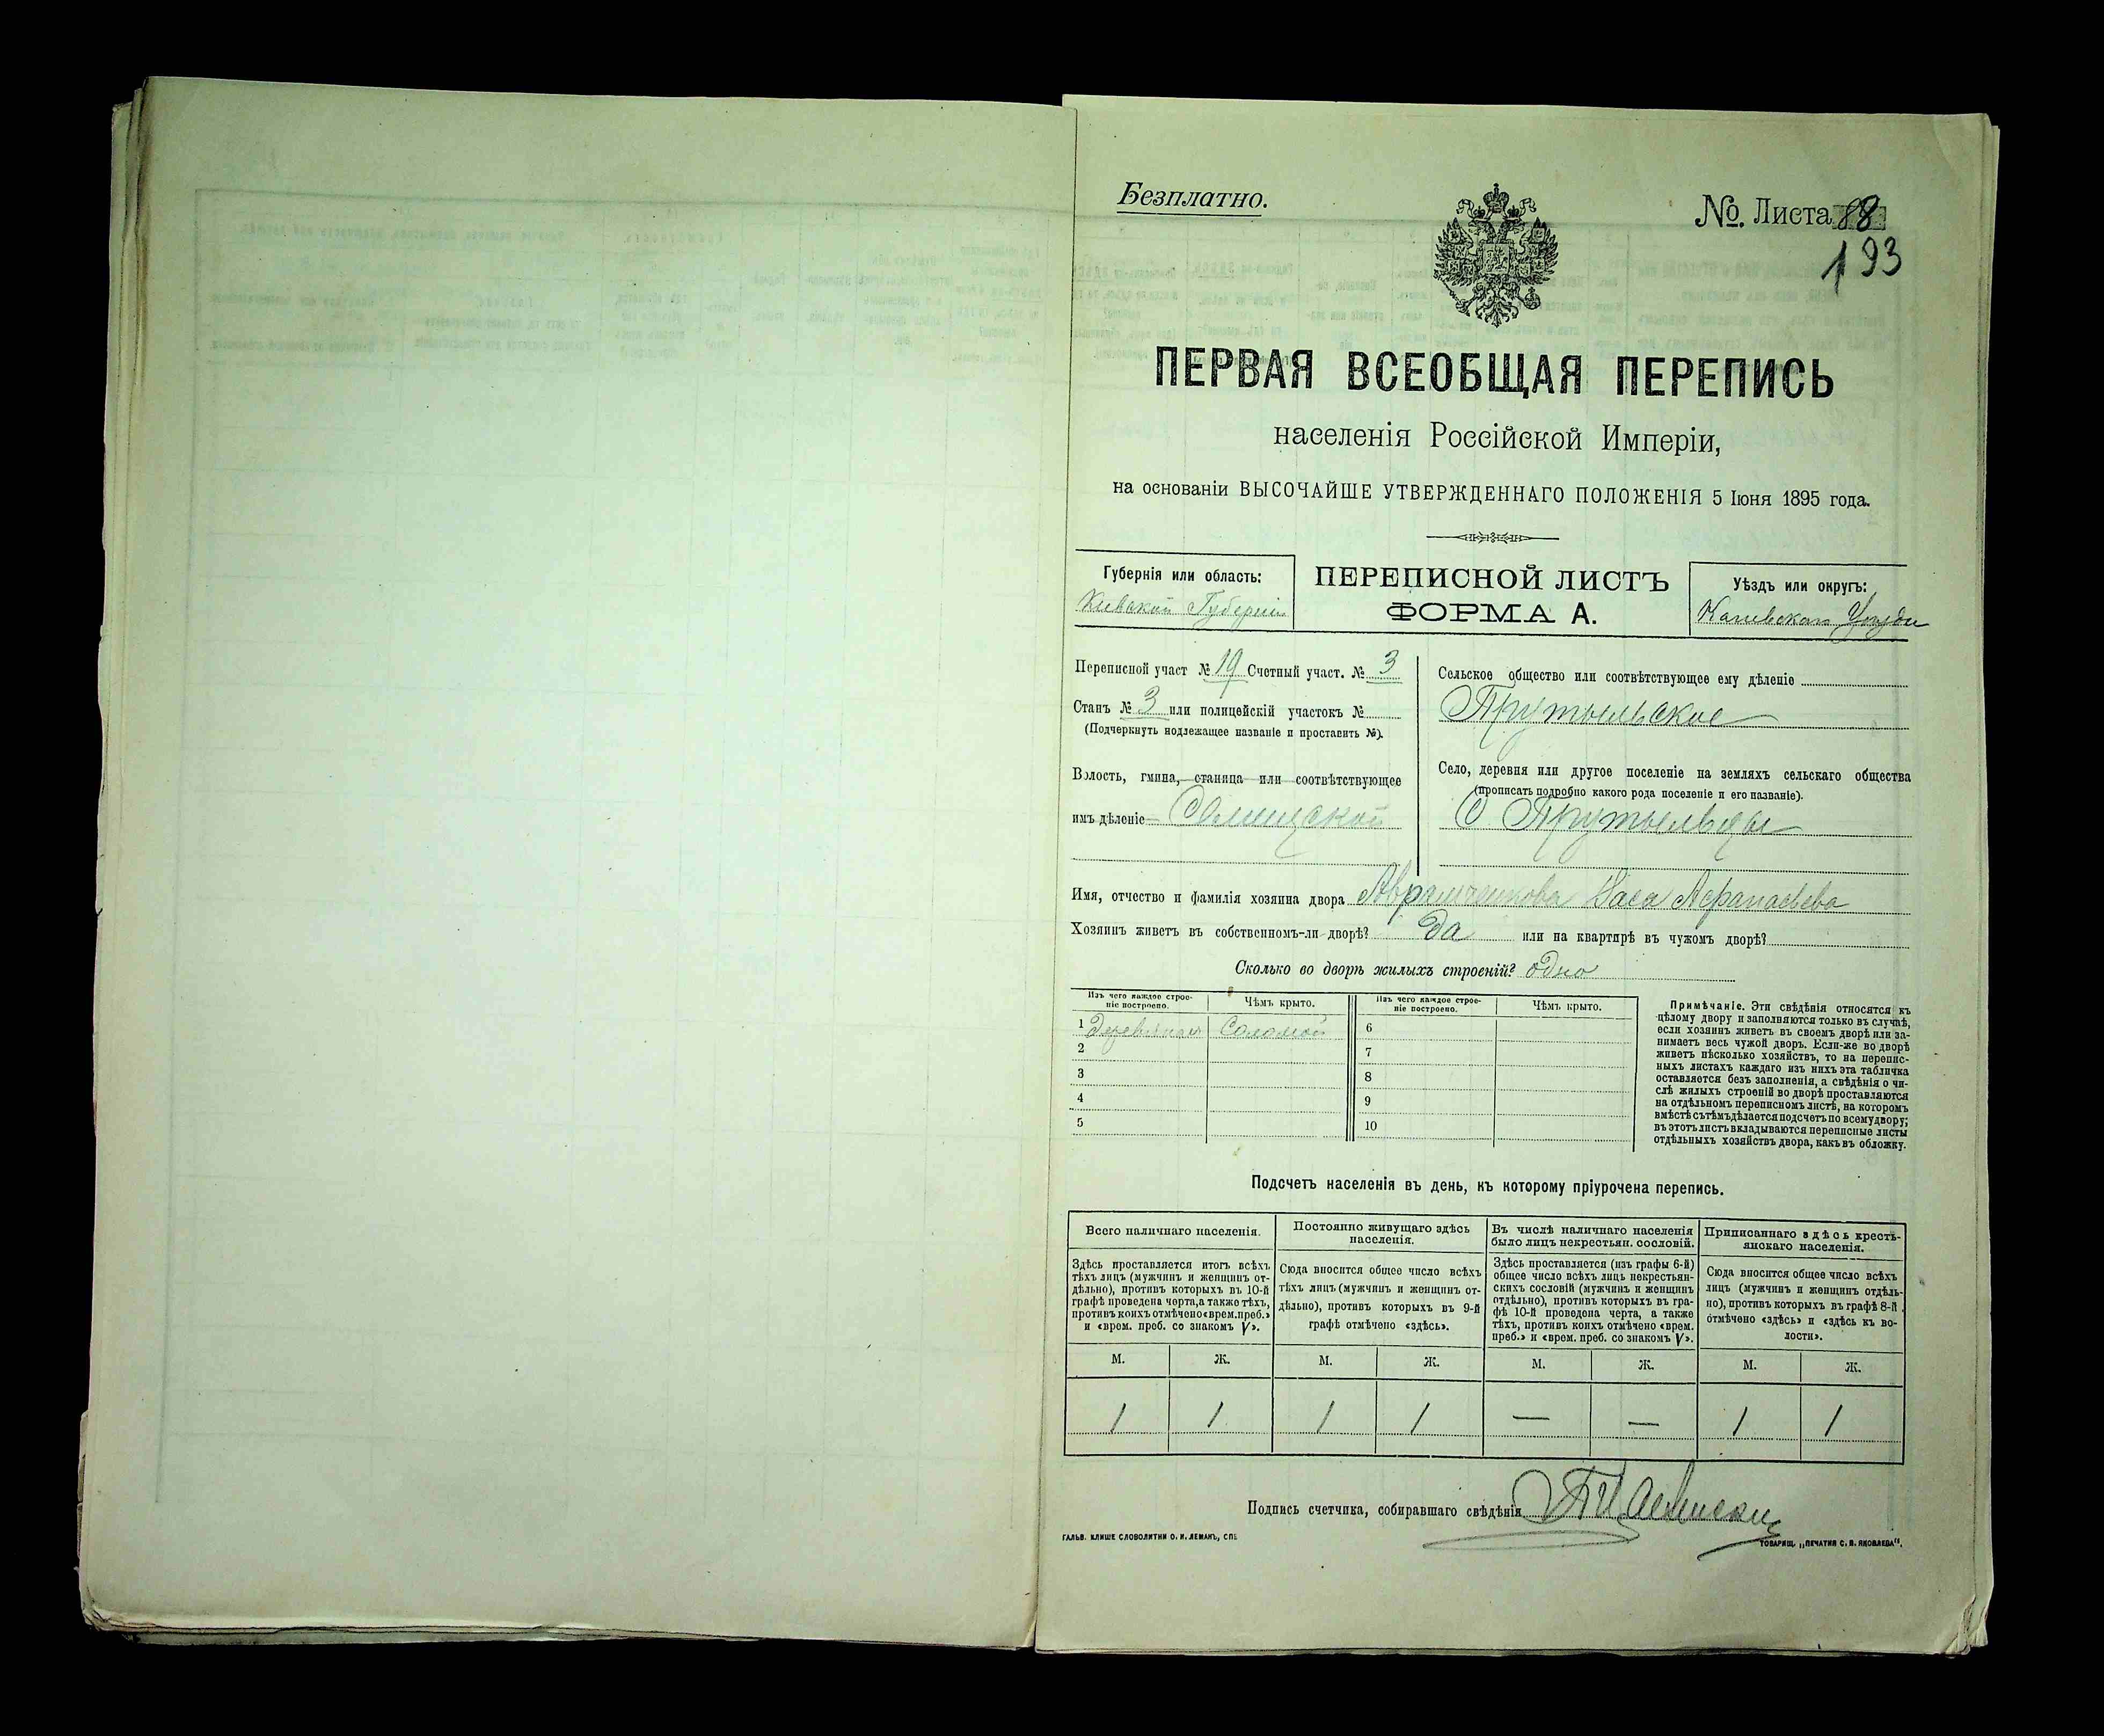 Безплатно.
№ Листа 88
193
ПЕРВАЯ ВСЕОБЩАЯ ПЕРЕПИСЬ
населенія Россійской Имперіи,
на основаніи ВЫСОЧАЙШЕ УТВЕРЖДЕННАГО ПОЛОЖЕНІЯ 5 Іюня 1895 года.
Губернія или область:
Кіевской Губерніи
ПЕРЕПИСНОЙ ЛИСТЪ
ФОРМА А.
Уѣздъ или округъ:
Переписной участ № 19 Счетный участ. № 3
Станъ № 3 или полицейскій участокъ №
(Подчеркнуть надлежащее названіе и проставить №).
Волость, гмина, станица или соотвѣтствующее
имъ дѣленіе
Сельское общество или соотвѣтствующее ему дѣленіе
Село, деревня или другое поселеніе на земляхъ сельскаго общества
(прописать подробно какого рода поселеніе и его названіе).
Имя, отчество и фамилія хозяина двора
Хозяинъ живетъ въ собственномъ-ли дворѣ? Да или на квартирѣ въ чужомъ дворѣ?
Сколько во дворѣ жилыхъ строеній? одно
Изъ чего каждое строе-
ніе построено.
Чѣмъ крыто.
Изъ чего каждое строе-
ніе построено.
Чѣмъ крыто.
1 Соломой 6
2 7
3 8
4 9
5 10
Примѣчаніе. Эти свѣдѣнія относятся къ
цѣлому двору и заполняются только въ случаѣ,
если хозяинъ живетъ въ своемъ дворѣ или за-
нимаетъ весь чужой дворъ. Если-же во дворѣ
живетъ нѣсколько хозяйствъ, то на перепис-
ныхъ листахъ каждаго изъ нихъ эта табличка
оставляется безъ заполненія, а свѣдѣнія о чи-
слѣ жилыхъ строеній во дворѣ проставляются
на отдѣльномъ переписномъ листѣ, на которомъ
вмѣстѣ съ тѣмъ дѣлается подсчетъ по всему двору;
въ этотъ листъ вкладываются переписные листы
отдѣльныхъ хозяйствъ двора, какъ въ обложку.
Подсчетъ населенія въ день, къ которому пріурочена перепись.
Всего наличнаго населенія.
Здѣсь проставляется итогъ всѣхъ
тѣхъ лицъ (мужчинъ и женщинъ от-
дѣльно), противъ которыхъ въ 10-й
графѣ проведена черта, а также тѣхъ,
противъ коихъ отмѣчено «врем. преб.»
и «врем. преб. со знакомъ V».
Постоянно живущаго здѣсь
населенія.
Сюда вносится общее число всѣхъ
тѣхъ лицъ (мужчинъ и женщинъ от-
дѣльно), противъ которыхъ въ 9-й
графѣ отмѣчено «здѣсь».
Въ числѣ наличнаго населенія
было лицъ некрестьян. сословій.
Здѣсь проставляется (изъ графы 6-й)
общее число всѣхъ лицъ некрестьян-
скихъ сословій (мужчинъ и женщинъ
отдѣльно), противъ которыхъ въ гра-
фѣ 10-й проведена черта, а также
тѣхъ, противъ коихъ отмѣчено «врем.
преб.» и «врем. преб. со знакомъ V».
Приписаннаго здѣсь кресть-
янскаго населенія.
Сюда вносится общее число всѣхъ
лицъ (мужчинъ и женщинъ отдѣль-
но), противъ которыхъ въ графѣ 8-й
отмѣчено «здѣсь» и «здѣсь къ во-
лости».
М. Ж. М. Ж. М. Ж. М. Ж.
1 1 1 1 — — 1 1
Подпись счетчика, собиравшаго свѣдѣнія
ГАЛЬВ. КЛИШЕ СЛОВОЛИТНИ О. И. ЛЕМАНЪ, СПБ
ТОВАРИЩ. „ПЕЧАТНЯ С. П. ЯКОВЛЕВА".